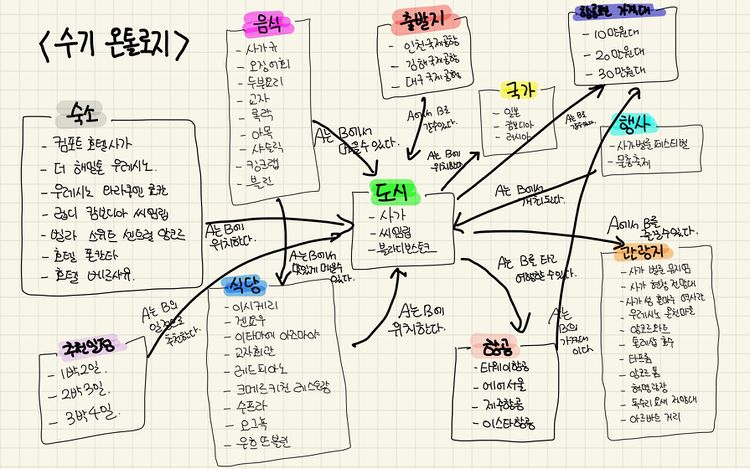 <수기 온톨로지>
음식
- 사가규
- 오징어회
- 두부요리
- 교자
- 록락
- 아목
- 샤슬릭
- 킹크랩
- 블린
출발지
- 인천국제공항
- 김해국제공항
- 대구국제공항
항공편 가격대
- 10만원대
- 20만원대
- 30만원대
국가
- 일본
- 캄보디아
- 러시아
행사
- 사가벌룬페스티벌
- 물축제
숙소
- 컴포트 호텔사가
- 더 해밀톤 우레시노
- 우레시노
- 캄보디아 씨엠립
- 빌라 스위트 센트럴 앙코르
- 호텔
- 호텔 베르사유
도시
- 사가
- 씨엠립
- 블라디보스토크
추천일정
- 1박2일.
- 2박3일.
- 3박4일.
식당
- 이시케리
- 겐요우
- 이타마에
- 교자회관
- 레드피아노
- 크메르키친 레스토랑
- 수프라
- 오그뇩
- 우흐뜨블린
항공
- 티웨이항공
- 에어서울
- 제주항공
- 이스타항공
관광지
- 사가 벌룬 뮤지엄
- 사가 현청 전망대
- 사가성 혼마루 역사관
- 우레시노 온천마을
- 앙코르와트
- 톤레삽 호수
- 타프롬
- 앙코르 톰
- 해양공원
- 독수리요새 전망대
- 아르바트 거리
A는 B에서
먹을수 있다.
A에서 B로
갈수있다.
A는 B에
위치한다.
A는 B에서
개최된다.
A는 B에
위치한다.
A는 B에서
맛있게 먹을수
있다.
A는 B의
일정으로
추천한다.
A는 B에
위치한다.
A는 B를 타고
여행할 수있다.
A는
B의
가격대
이다.
A에서 B를
즐길수있다.